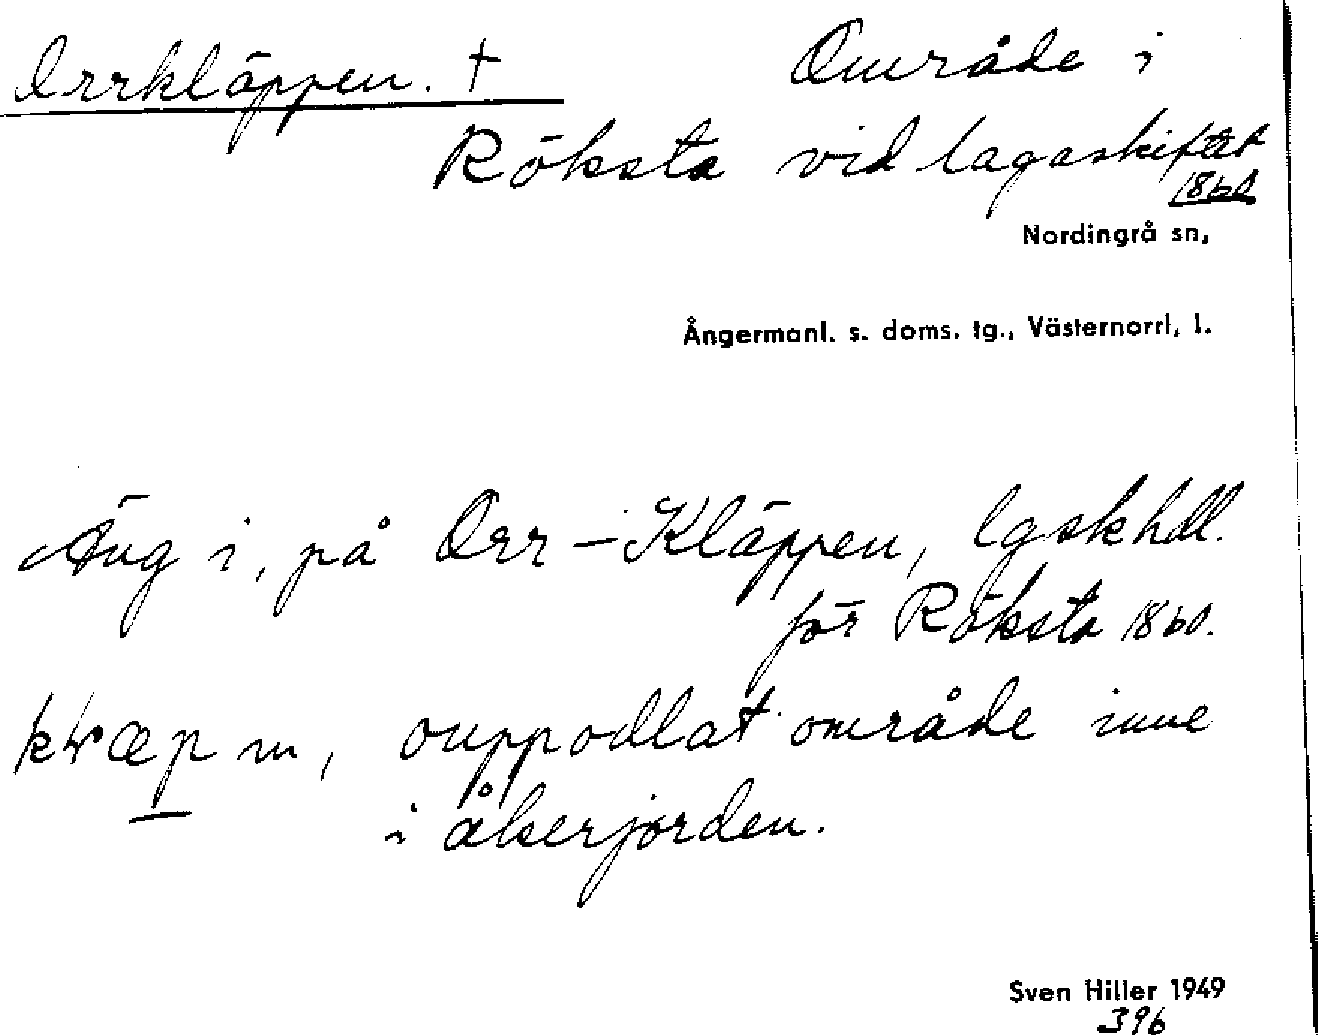 Orrkläppen. † Område i
Röksta vid lagaskiftet
1860
Nordingrå sn,
Ångermanl. s. doms. tg., Västernorrl. l.
Äng i, på Orr-Kläppen, lgskhdl.
för Röksta 1860.
m, ouppodlat område inne
i åkerjorden.
Sven Hiller 1949
396